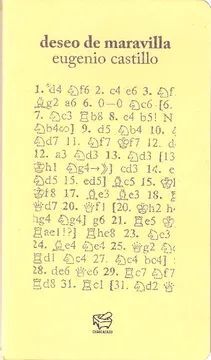 deseo de maravilla
eugenio castillo
1. d4 ♘f6 2. c4 e6 3. ♘f
♗g2 a6 6. 0—0 ♘c6 [6.
7. ♘c3 ♖b8 8. e4 b5! N
♘b4∞] 9. d5 ♘b4 10.
♘d7 11. ♘f7 ♔f7 12. d
12. a3 ♘d3 13. ♘d3 [13
♔h1 ♘g4→] cd3 14. e
♘d5 15. ed5] ♗c5 15. ♔
♔f8 17. ♗e3 ♗e3 18. ♖
♕d7 20. ♕f1! [20. ♔h2 h
♘g4] g6 21. ♖e5
♖ae1!?] ♖he8 23. ♘e
24. ♗e4 ♘e4 25. ♕g2
♖d1 ♘c4 27. ♘c4 bc4]
28. de6 ♕e6 29. ♖c7 ♘f7
♖d8 31. ♖c1 [31. ♘d2 ♕